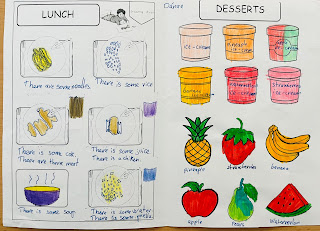 LUNCH
There are some noodles
There is some rice
There is some
There are there meat
There is some juice
There is a chiken
There is some soup
There is some water
There is some
DESSERTS
ice-cream
pineaple
ice-cream
ice-cream
banana
ice-cream
ice-cream
strawberries
ice-cream
pineaple
strawberries
banana
apple
Pears
Watermelon